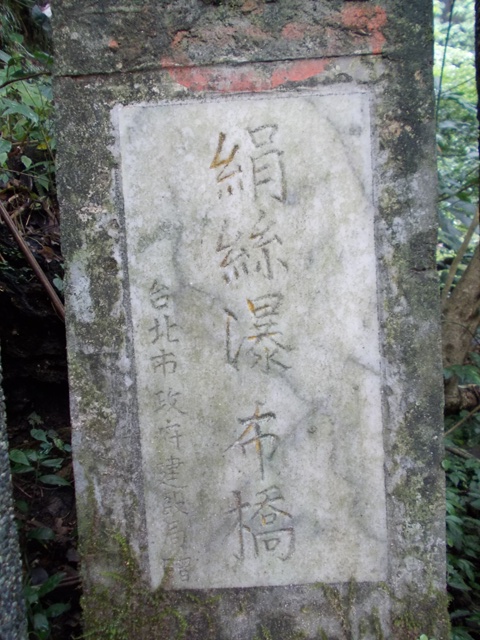 絹絲瀑布橋
台北市政府建設局